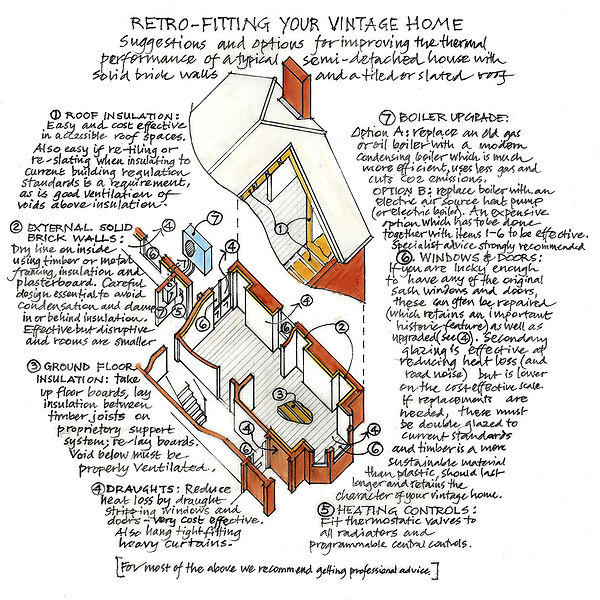 RETRO-FITTING YOUR VINTAGE HOME
Suggestions and options for improving the thermal
performance of a typical semi-detached house with
solid brick walls and a tiled or slated roof
① ROOF INSULATION:
Easy and cost effective
in accessible roof spaces.
Also easy if re-tiling or
re-slating when insulating to
current building regulation
standards is a requirement,
as is good ventilation of
voids above insulation.
② EXTERNAL SOLID
BRICK WALLS:
Dry line on inside
using timber or metal
framing, insulation and
plasterboard. Careful
design essential to avoid
condensation and damp
in or behind insulation.
Effective but disruptive
and rooms are smaller
③ GROUND FLOOR
INSULATION: take
up floor boards, lay
insulation between
timber joists on
proprietory support
system; re-lay boards.
Void below must be
properly ventilated.
④ DRAUGHTS: Reduce
heat loss by draught
stripping windows and
doors - very cost effective.
Also hang tight fitting
heavy curtains.
⑦ BOILER UPGRADE:
Option A: replace an old gas
or oil boiler with a modern
condensing boiler which is much
more efficient, uses less gas and
cuts CO2 emissions.
OPTION B: replace boiler with an
electric air source heat pump
(or electric boiler). An expensive
option which has to be done
together with items 1-6 to be effective.
Specialist advice strongly recommended
⑥ WINDOWS & DOORS:
If you are lucky enough
to have any of the original
sash windows and doors,
these can often be repaired
(which retains an important
historic feature) as well as
upgraded (see ④). Secondary
glazing is effective at
reducing heat loss (and
road noise) but is lower
on the cost effective scale.
If replacements are
needed, these must
be double glazed to
current standards
and timber is a more
sustainable material
than plastic, should last
longer and retains the
character of your vintage home.
⑤ HEATING CONTROLS:
Fit thermostatic valves to
all radiators and
programmable central controls.
①
④
⑦
④
④
⑥
⑥
②
⑦
⑤
⑥
③
④
⑥
④
⑥
④
[For most of the above we recommend getting professional advice.]